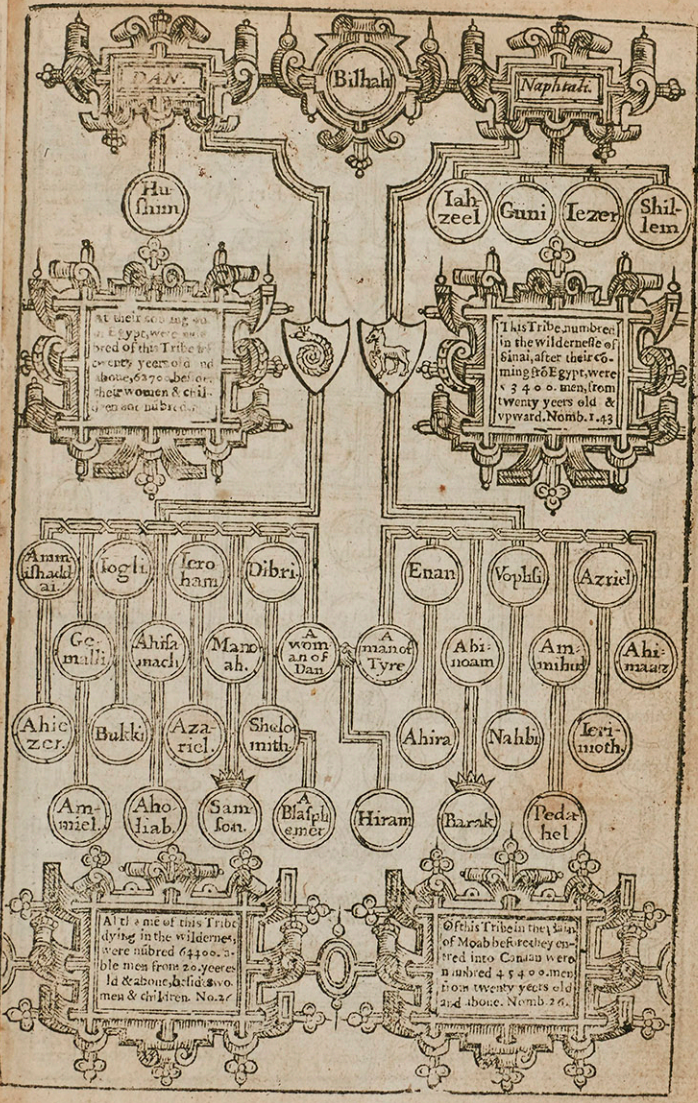 DAN.
Bilhah
Naphtali.
Hu-
shim
Iah-
zeel
Guni
Iezer
Shil-
lem
At their
Egypt, were
bred of this Tribe
twenty yeers old and
aboue, 62700. besides
their women & chil-
dren not nūbred.
This Tribe, numbred
in the wildernesse of
Sinai, after their cō-
ming frō Egypt, were
53400. men, from
twenty yeers old &
vpward. Nomb. 1.43
Amm
ishadd
ai.
Iogli.
Iero
ham
Dibri.
Enan
Vophsi
Azriel
Ge-
malli
Ahisa
mach
Mano
ah.
A
wom
an of
Dan
A
man of
Tyre
Abi-
noam
Am-
mihud
Ahi-
maaz
Ahie
zer.
Bukki
Aza-
riel.
Shelo
mith.
Ahira
Nahbi
Ieri-
moth.
Am-
miel.
Aho-
liab.
Sam-
son.
A
Blasph
emer
Hiram
Barak
Peda-
hel
of this Tribe
dying in the wildernes,
were nūbred 64400. a-
ble men from 20. yeeres
old & aboue, besides wo-
men & children. No. 26
Of this Tribe in the plain
of Moab before they en-
tred into Canaan were
numbred 45400. men
from twenty yeers old
and aboue. Nomb. 26.